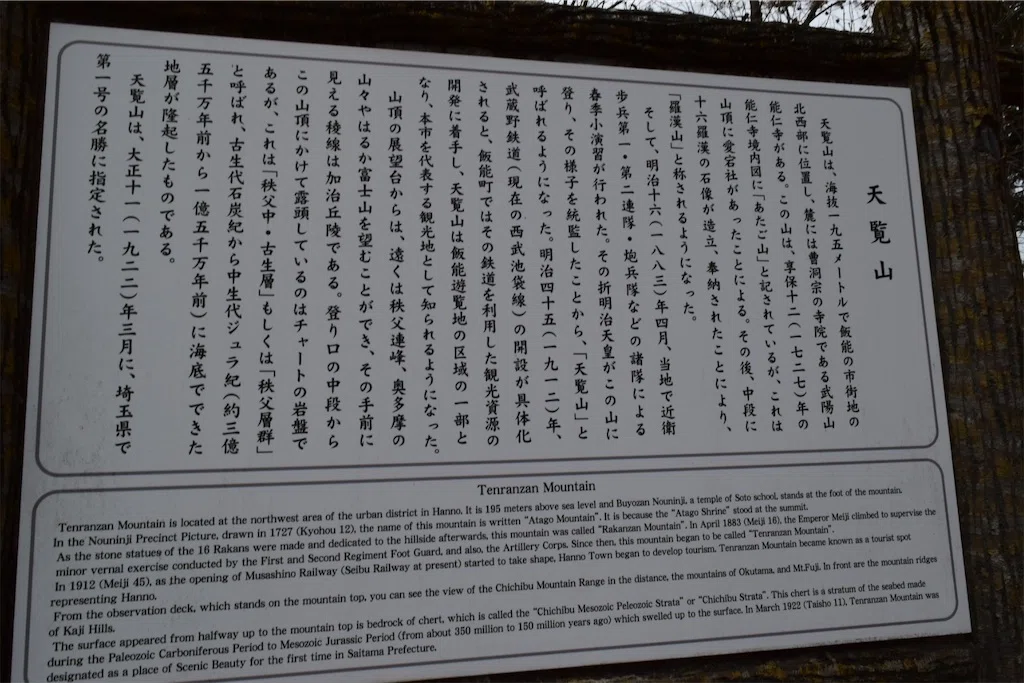 天覧山
天覧山は、海抜一九五メートルで飯能の市街地の
北西部に位置し、麓には曹洞宗の寺院である武陽山
能仁寺がある。この山は、享保十二（一七二七）年の
能仁寺境内図に「あたご山」と記されているが、これは
山頂に愛宕社があったことによる。その後、中段に
十六羅漢の石像が造立、奉納されたことにより、
「羅漢山」と称されるようになった。
そして、明治十六（一八八三）年四月、当地で近衛
歩兵第一・第二連隊・炮兵隊などの諸隊による
春季小演習が行われた。その折明治天皇がこの山に
登り、その様子を統監したことから、「天覧山」と
呼ばれるようになった。明治四十五（一九一二）年、
武蔵野鉄道（現在の西武池袋線）の開設が具体化
されると、飯能町ではその鉄道を利用した観光資源の
開発に着手し、天覧山は飯能遊覧地の区域の一部と
なり、本市を代表する観光地として知られるようになった。
山頂の展望台からは、遠くは秩父連峰、奥多摩の
山々やはるか富士山を望むことができ、その手前に
見える稜線は加治丘陵である。登り口の中段から
この山頂にかけて露頭しているのはチャートの岩盤で
あるが、これは「秩父中・古生層」もしくは「秩父層群」
と呼ばれ、古生代石炭紀から中生代ジュラ紀（約三億
五千万年前から一億五千万年前）に海底でできた
地層が隆起したものである。
天覧山は、大正十一（一九二二）年三月に、埼玉県で
第一号の名勝に指定された。
Tenranzan Mountain
Tenranzan Mountain is located at the northwest area of the urban district in Hanno. It is 195 meters above sea level and Buyozan Nouninji, a temple of Soto school, stands at the foot of the mountain.
In the Nouninji Precinct Picture, drawn in 1727 (Kyohou 12), the name of this mountain is written "Atago Mountain". It is because the "Atago Shrine" stood at the summit.
As the stone statues of the 16 Rakans were made and dedicated to the hillside afterwards, this mountain was called "Rakanzan Mountain". In April 1883 (Meiji 16), the Emperor Meiji climbed to supervise the
minor vernal exercise conducted by the First and Second Regiment Foot Guard, and also, the Artillery Corps. Since then, this mountain began to be called "Tenranzan Mountain".
In 1912 (Meiji 45), as the opening of Musashino Railway (Seibu Railway at present) started to take shape, Hanno Town began to develop tourism. Tenranzan Mountain became known as a tourist spot
representing Hanno.
From the observation deck, which stands on the mountain top, you can see the view of the Chichibu Mountain Range in the distance, the mountains of Okutama, and Mt.Fuji. In front are the mountain ridges
of Kaji Hills.
The surface appeared from halfway up to the mountain top is bedrock of chert, which is called the "Chichibu Mesozoic Peleozoic Strata" or "Chichibu Strata". This chert is a stratum of the seabed made
during the Paleozoic Carboniferous Period to Mesozoic Jurassic Period (from about 350 million to 150 million years ago) which swelled up to the surface. In March 1922 (Taisho 11), Tenranzan Mountain was
designated as a place of Scenic Beauty for the first time in Saitama Prefecture.